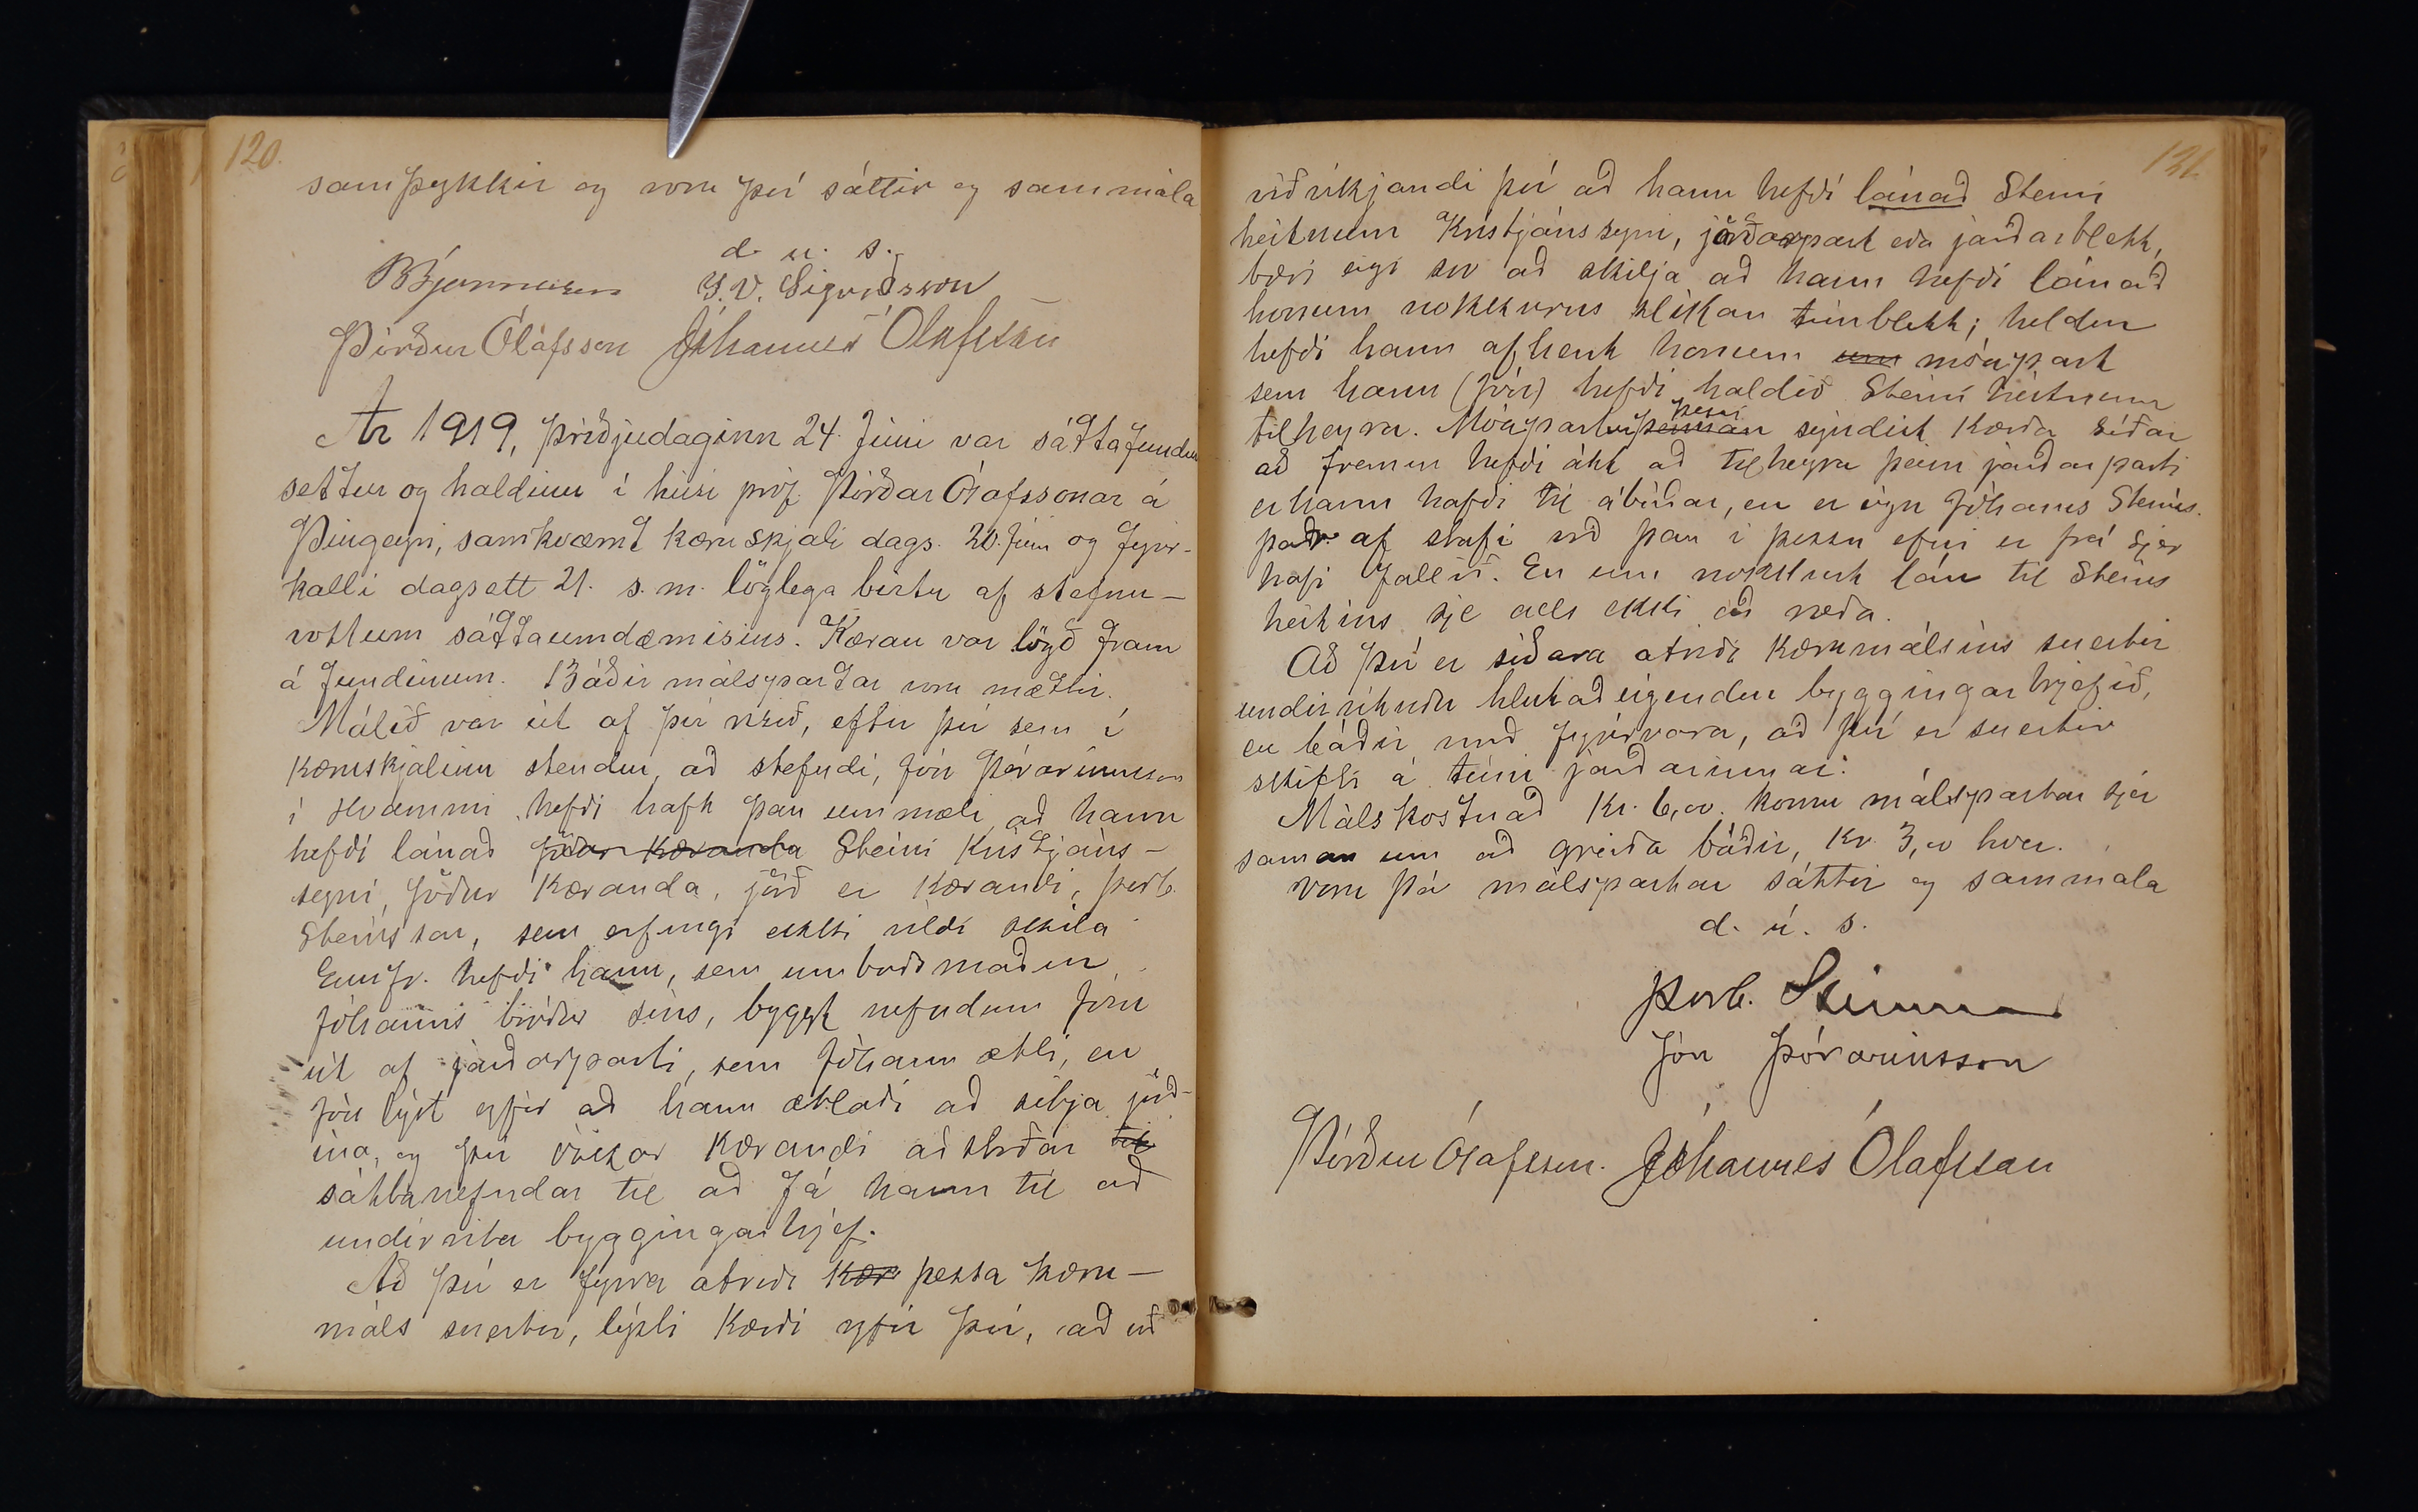 120.
samþykkir og voru því sáttir og sammála
d. u. s.
S. V. Sigurðsson
Þórður Ólafsson Jóhannes Ólafsson
Ár 1919, þriðjudaginn 24. Júní var sáttafundur
settur og haldinn í húsi próf. Þórðar Ólafssonar á
Þingeyri, samkvæmt kæruskjali dags. 20. Júní og fyrir-
kalli dagsett 21. s. m. löglega birtu af stefnu-
vottum sáttaumdæmisins. Kæran var lögð fram
á fundinum. Báðir málspartar voru mættir.
Málið var út af því risið, eftir því sem í
kæruskjalinu stendur, að stefndi, Jón Þórarinsson
í Hvammi hefði haft þau ummæli að hann
hefði lánað föður kæranda Steini Kristjáns-
syni, föður kæranda, jörð er kærandi, Þorb.
Steinsson, sem erfingi ekki vildi skila
Ennfr. hefði hann, sem umboðsmaður
Jóhanns bróður síns, byggt nefndum Jóni
út af jarðarparti, sem Jóhann ætti, en
Jón lýst yfir að hann ætlaði að sitja jörð-
ina, og því óskar kærandi aðstoðar til
sáttanefndar til að fá hann til að
undirrita byggingarbrjef.
Að því er fyrra atriði kær þessa kæru-
máls snertir, lýsti kærði yfir því, að við
121.
viðvíkjandi því að hann hefði lánað Steini
heitnum Kristjánssyni, jarðarpart eða jarðarblett,
bæri eigi svo að skilja að hann hefði lánað
honum nokkurns slíkan túnblett; heldur
hefði hann afhent honum um móapart
sem hann (Jón) hefði haldið Steini heitnum
tilheyra. Móapartur þennan þessi sýndist kærða síðar
að fremur hefði átt að tilheyra þeim jarðarparti
er hann hafði til ábúðar, en er eign Jóhanns Steins.
það af stafi við þau í þessu efni er frá sjer
hafi fallið. En um nokkurt lán til Steins
heitins sje alls ekki að ræða.
Að því er síðara atriði kærumálsins snertir
undirrituðu hlutaðeigendur byggingarbrjefið,
en báðir með fyrirvara, að því er snertir
skifti á túni jarðarinnar.
Málskostnað Kr. 6,00 komu málspartar sjer
saman um að greiða báðir, Kr 3,00 hver.
Voru þá málspartar sáttir og sammála
d. ú. s.
Þorb. Steinsson
Jón Þórarinsson
Þórður Ólafsson. Jóhannes Ólafsson